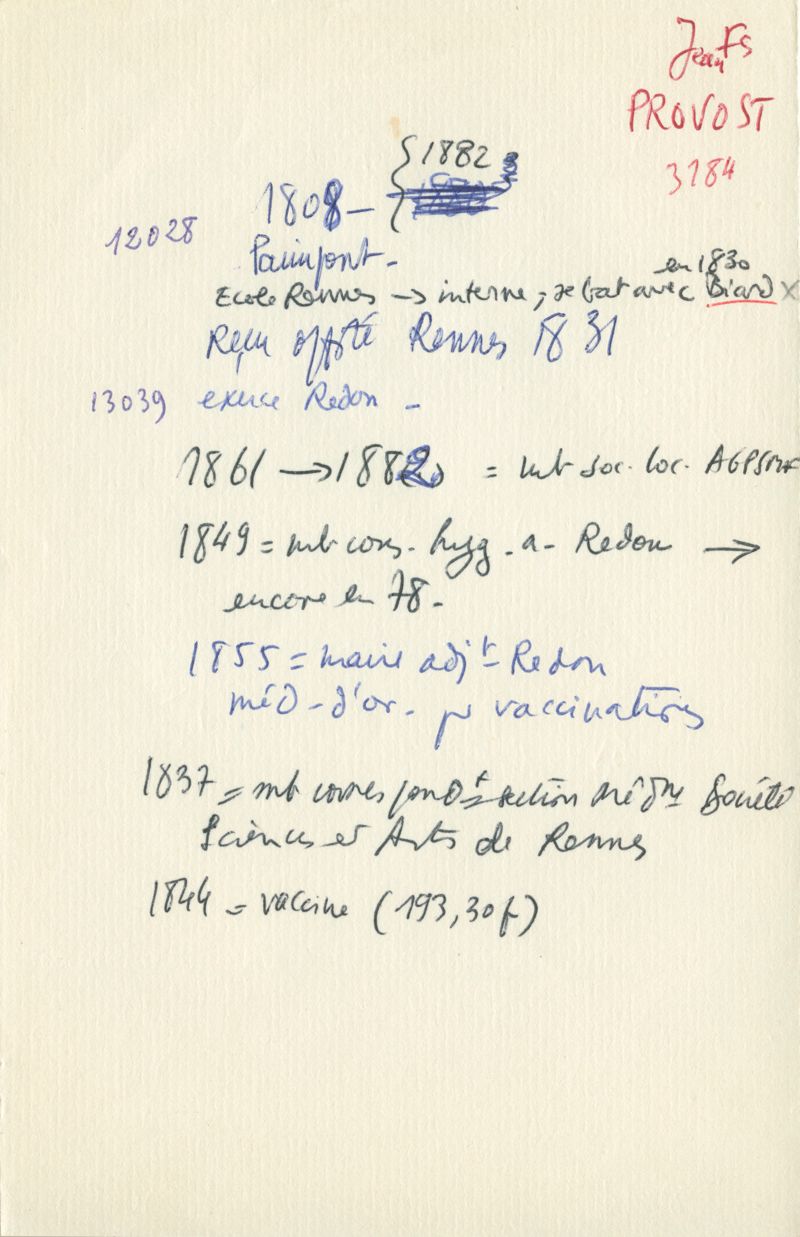 Jean Fs
PROVOST
3184
1882
1808 -
12028
Paimpont -
en 1830
Ecole Rennes → interne, se bat avec Biard x
Reçu offté Rennes 1831
13039 exerce Redon -
1861 → 1882 = mb soc. loc. AGPSMF
1849 = mb cons. hyg. a. Redon →
encore en 78 -
1855 = maire adjt Redon
méd - d'or - pr vaccinations
1837 = mb correspondt section Méd Société
Sciences et Arts de Rennes
1844 = vaccine (193,30f)